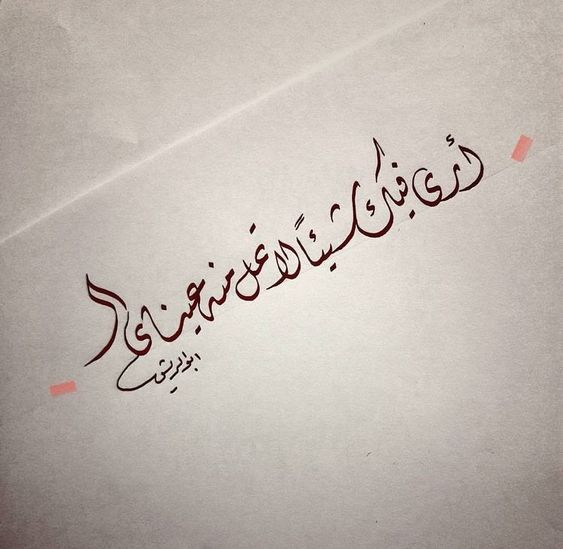 أرى فيك شيئاً لا تمل منه عيناي !
ابو الريش